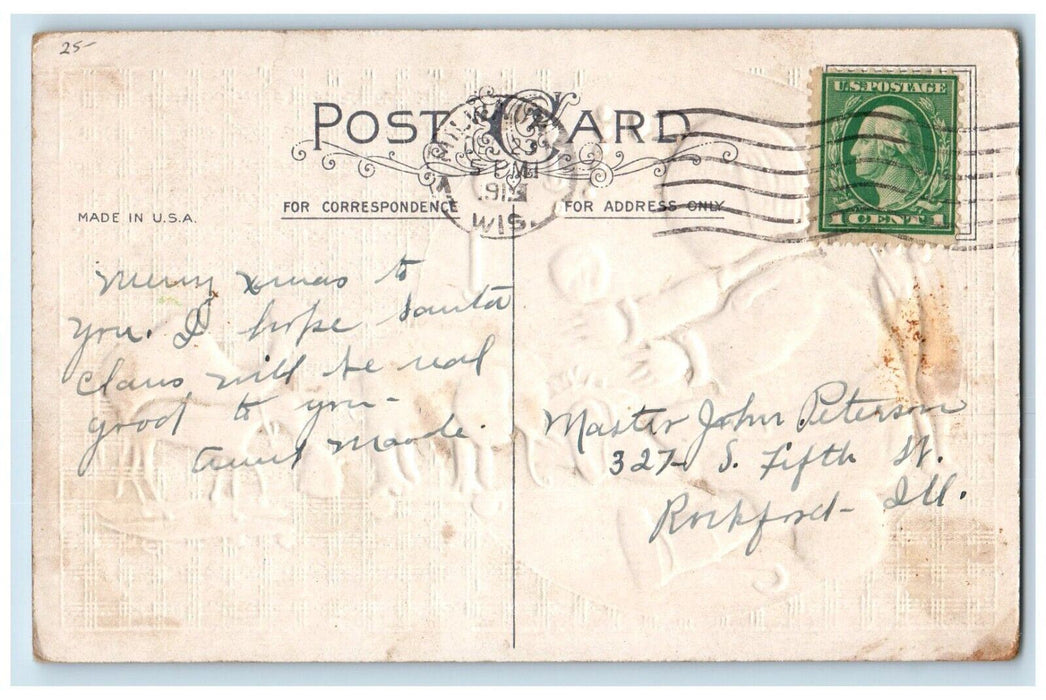 25-
POST CARD
U.S. POSTAGE
1 CENT 1
23
PM
WIS.
MADE IN U.S.A.
FOR CORRESPONDENCE
FOR ADDRESS ONLY
Merry Xmas to
you. I hope Santa
Claus will be real
good to you-
Aunt Maode.
Master John Peterson
327- S. Fifth St.
Rockford- Ill.